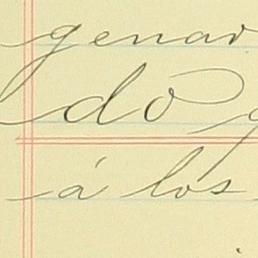 genar
do
á los